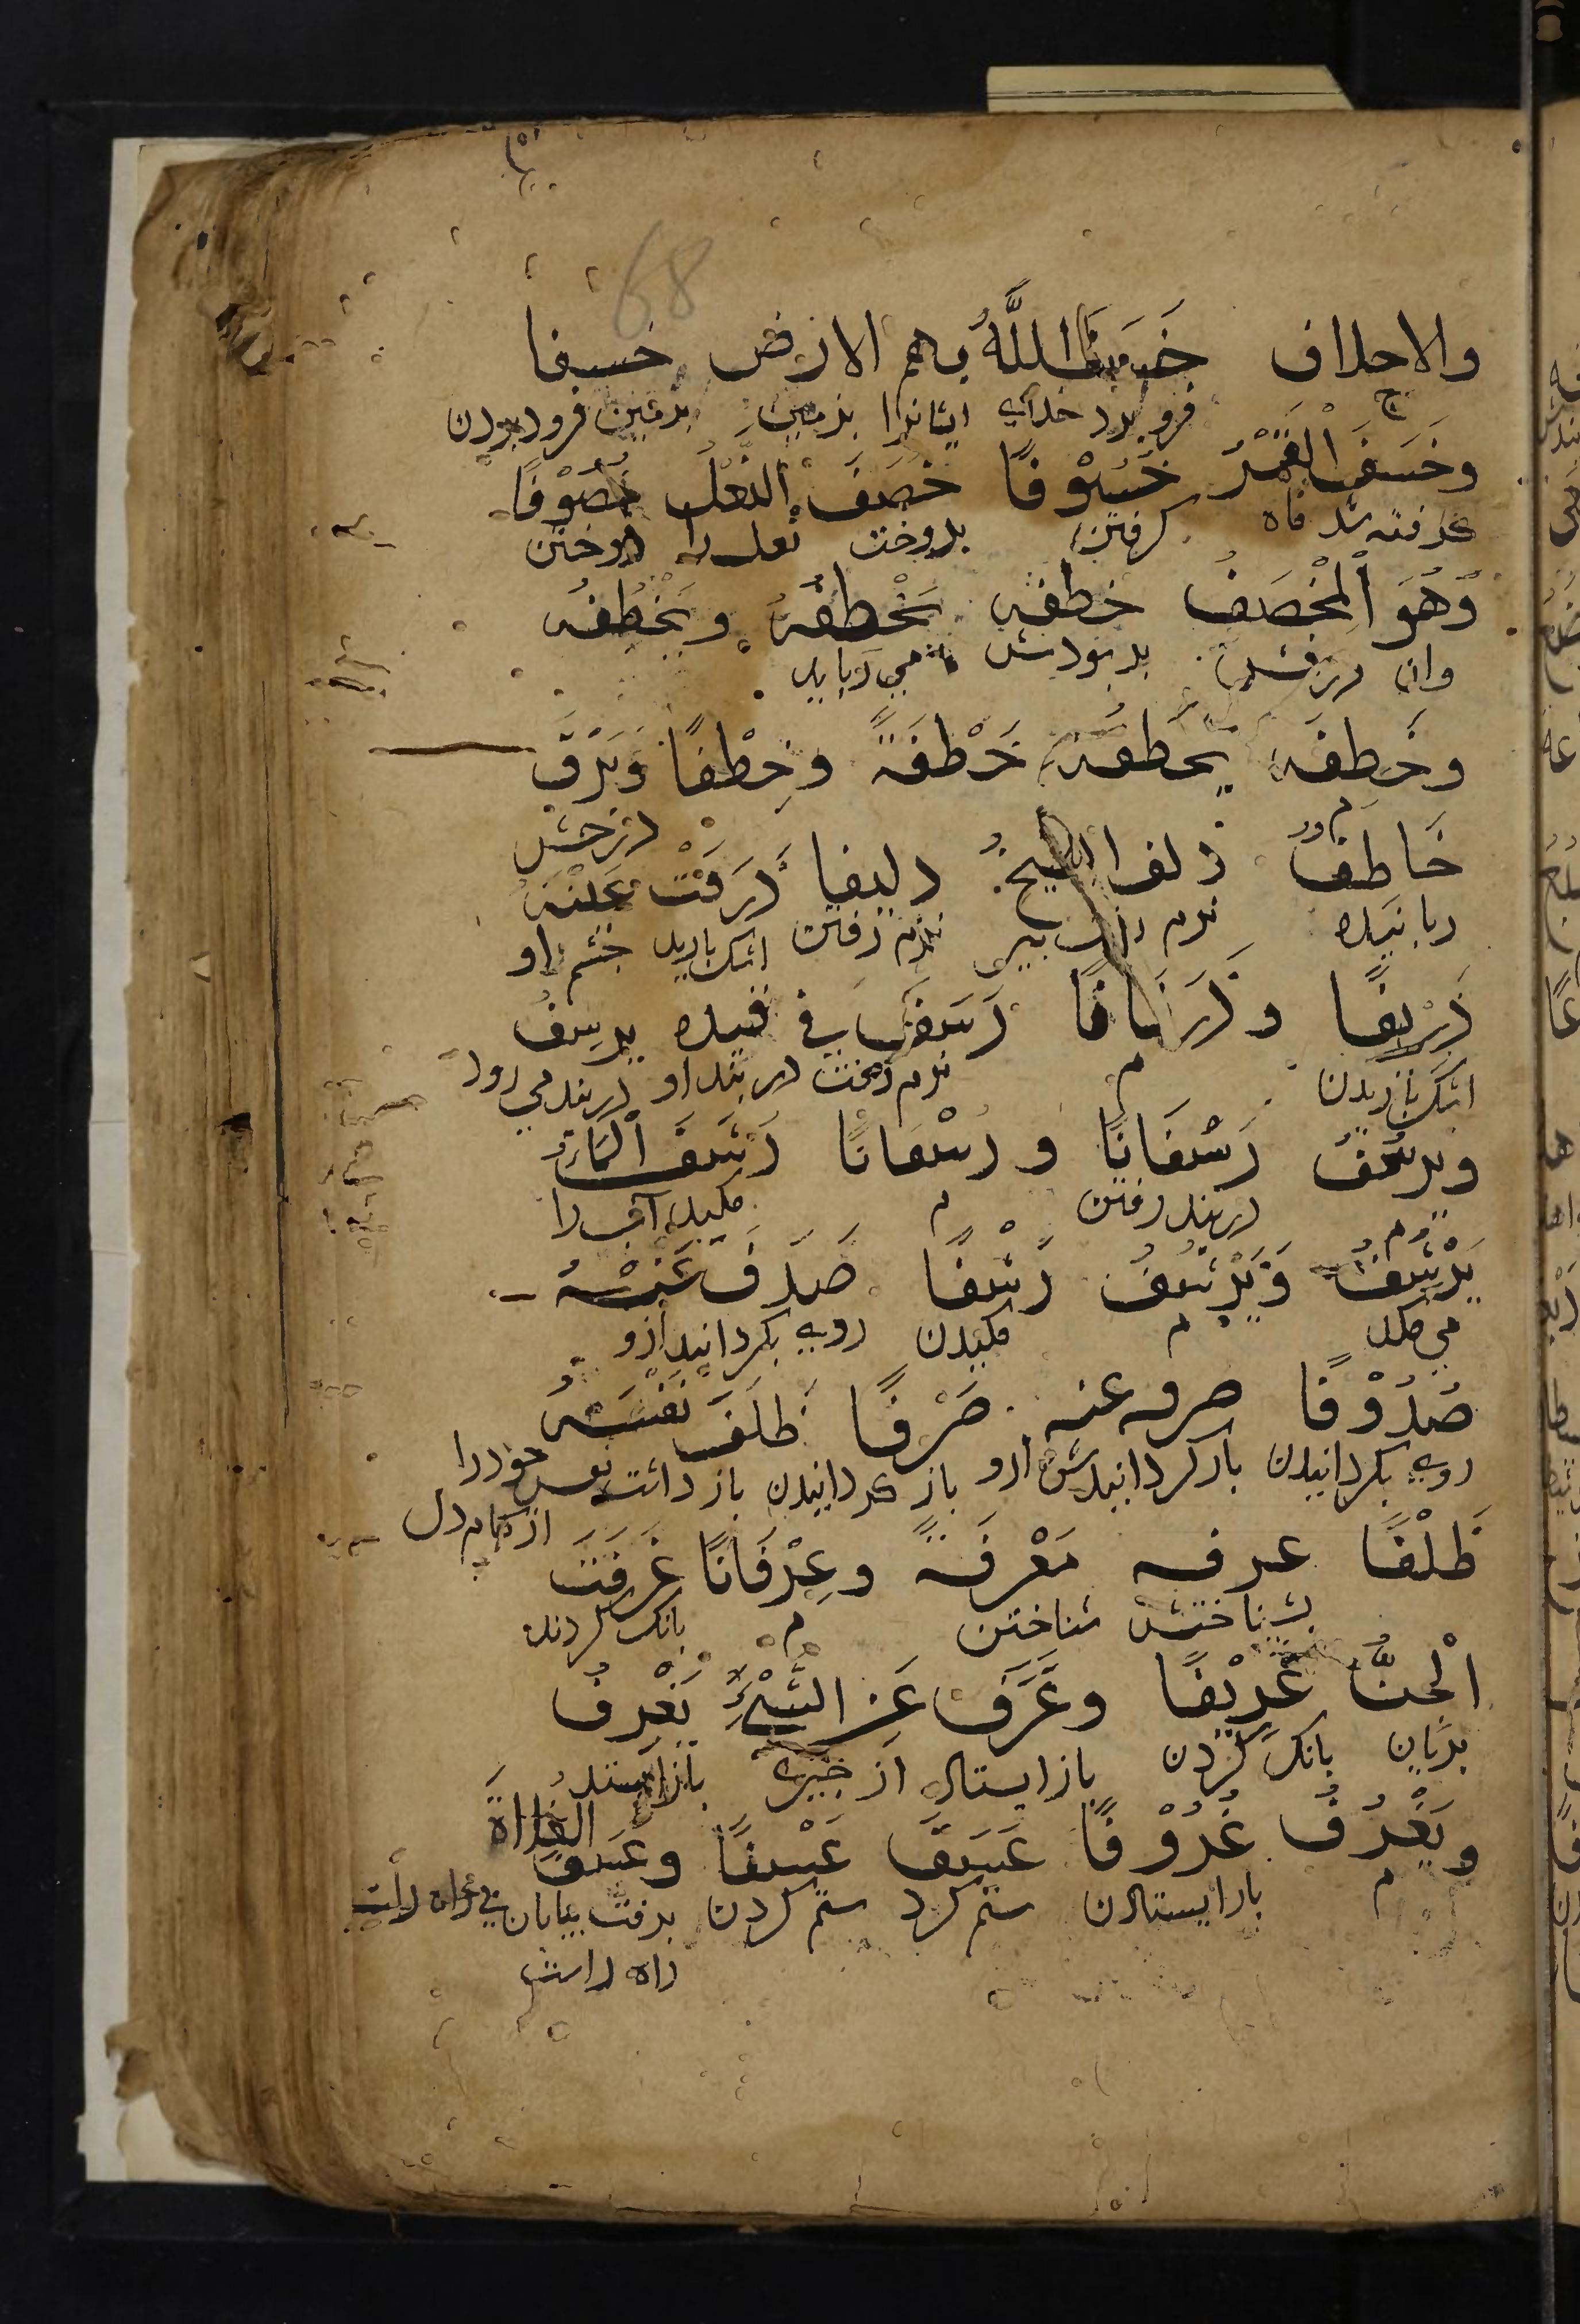 68
والاحلاف خَسَفَ اللَّهُ بهم الارض خسفا
ج فرو برد خداى ايشانرا بزمين بزمين فرو بردن
وخَسَفَ الْقَمَرُ خُسُوْفًا خَصَفَ النَّعْلَ خَصْوفًا
گرفته شد ماه گرفتن بدوخت نعل را دوختن
وَهُوَ الْمِخْصَفُ خطفه يَخْطفُهُ ويَخْطِفُه
وان درفش بربودش مى ربايد
وخَطِفَه يخطفه خَطْفَةً وخَطْفًا وَبَرْقٌ
م درخش
خَاطِفٌ دلف الشيخُ دليفا ذَرَفَتْ عَيْنُهُ
ربانيده نرم رفت پير نرم رفتن اشك باريد چشم او
ذَرِيْفًا وذَرَفَانًا رَسَفَ في قيده يرسِفُ
اشك باريدن م نرم رفت در بند او در بند مى رود
ويرسُفُ رَسْفَانًا و رسفانا رَشَفَ الْمَاءَ
م در بند رفتن م مكيد آب را
يَرْشِفُ وَيَرْشُفُ رَشْفًا صَدَفَ عَنْهُ
مى مكد م مكيدن روى بگردانيد ازو
صُدُوْفًا صرفه عنه صَرْفًا ظَلَفَ نَفْسَهُ
روى بگردانيدن بازگردانيدش ازو باز گردانيدن باز داشت نفس خودرا
از كام دل
ظَلْفًا عرفه مَعْرِفَةً وعِرْفَانًا عَزَفَتْ
بشناختش شناختن م بانگ كردند
الْجِنُّ عَزِيْفًا وعَزَفَ عَنِ الشَّيْءِ يَعْزِفُ
پريان بانگ كردن بازايستاد از چيزى بازايستد
ويَعْزُفُ عُزُوْفًا عَسَفَ عَسْفًا وعَسَفَ الفلاة
م بازايستادن ستم كرد ستم كردن برفت بيابان
راه راست